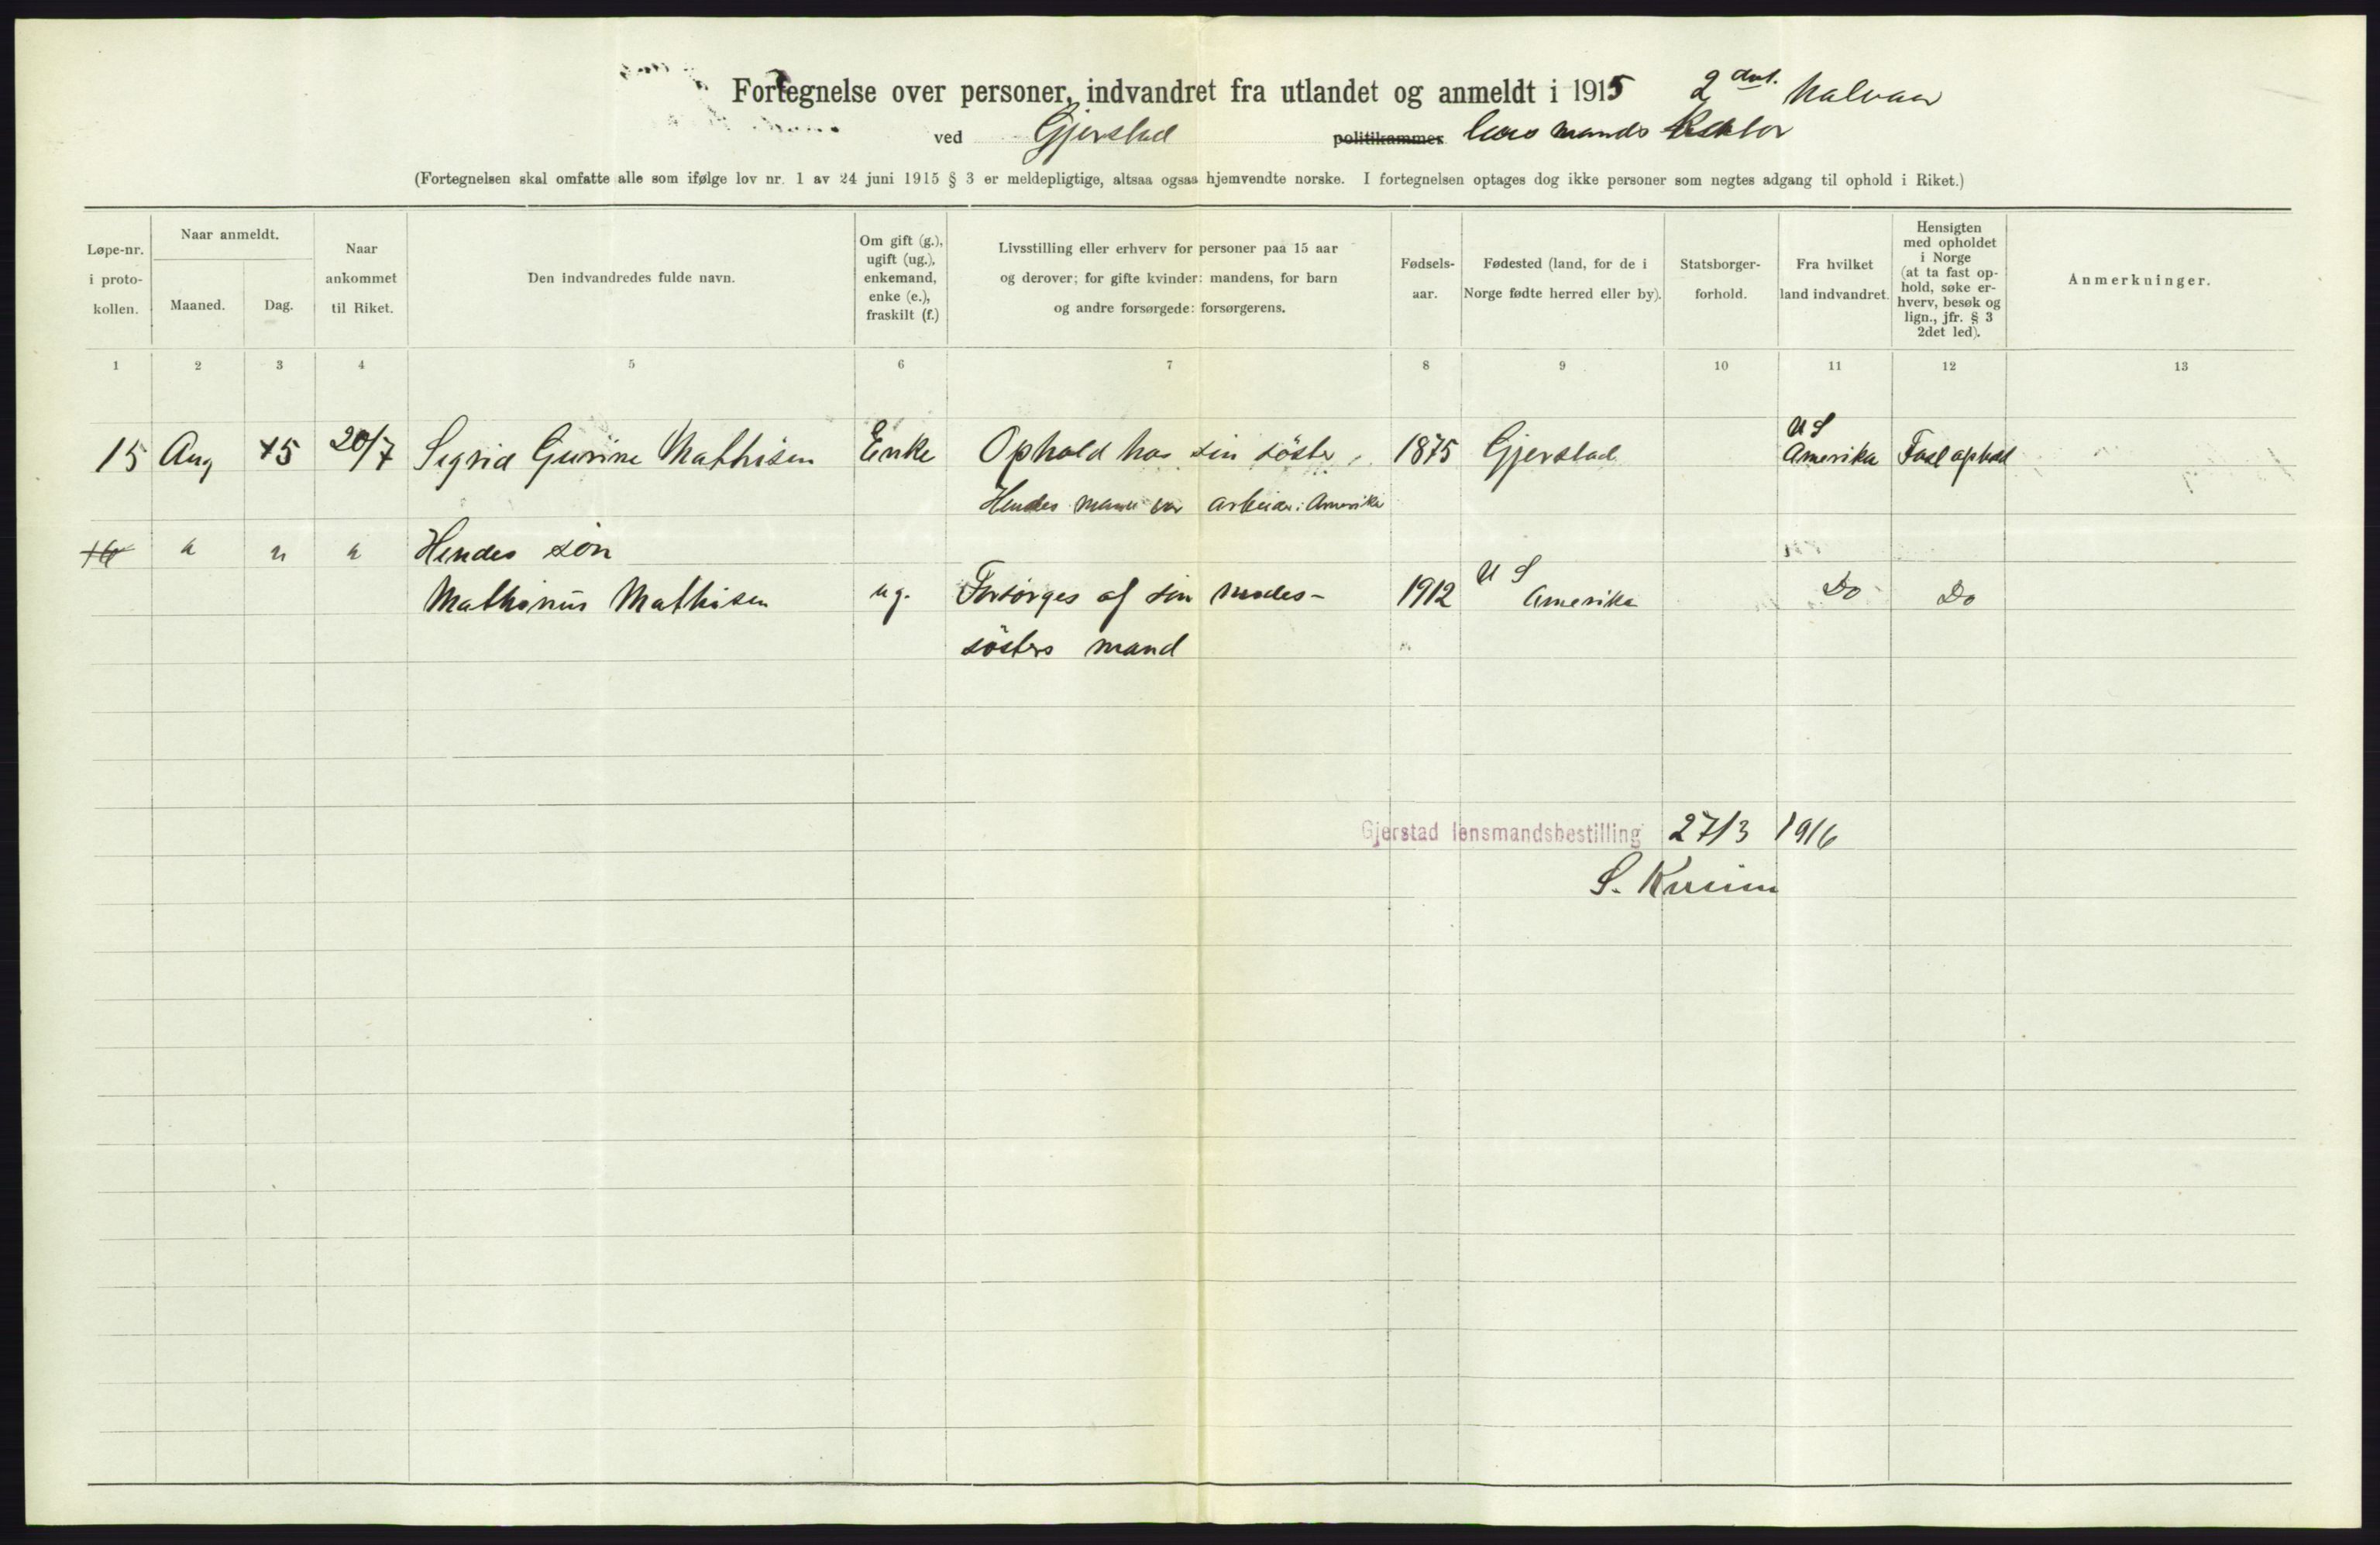 Fortegnelse over personer, indvandret fra utlandet og anmeldt i 1915 2det. halvaar
ved Gjerstad politikammer
(Fortegnelsen skal omfatte alle som ifølge lov nr. 1 av 24 juni 1915 § 3 er meldepligtige, altsaa ogsaa hjemvendte norske. I fortegnelsen optages dog ikke personer som negtes adgang til ophold i Riket.)
Løpe-nr.
i proto-
kollen.
Naar anmeldt.
Maaned.
Dag.
Naar
ankommet
til Riket.
Den indvandredes fulde navn.
Om gift (g.),
ugift (ug.),
enkemand,
enke (e.),
fraskilt (f.)
Livsstilling eller erhverv for personer paa 15 aar
og derover; for gifte kvinder: mandens, for barn
og andre forsørgede: forsørgerens.
Fødsels-
aar.
Fødested (land, for de i
Norge fødte herred eller by).
Statsborger-
forhold.
Fra hvilket
land indvandret.
Hensigten
med opholdet
i Norge
(at ta fast op-
hold, søke er-
hverv, besøk og
lign., jfr. § 3
2det led).
Anmerkninger.
1 2 3 4 5 6 7 8 9 10 11 12 13
U S
15 Aug 15 20/7 Sigrid Gurine Mathisen Enke Ophold hos sin söster, 1875 Gjerstad Amerika Fast ophold
Hendes mand var arbeider i Amerika
16 " " " Hendes sön
U S
Mathinus Mathisen ug. Forsörges af sin moder- 1912 Amerika Do Do
sösters mand
Gjerstad lensmandsbestilling 27/3 1916
S.